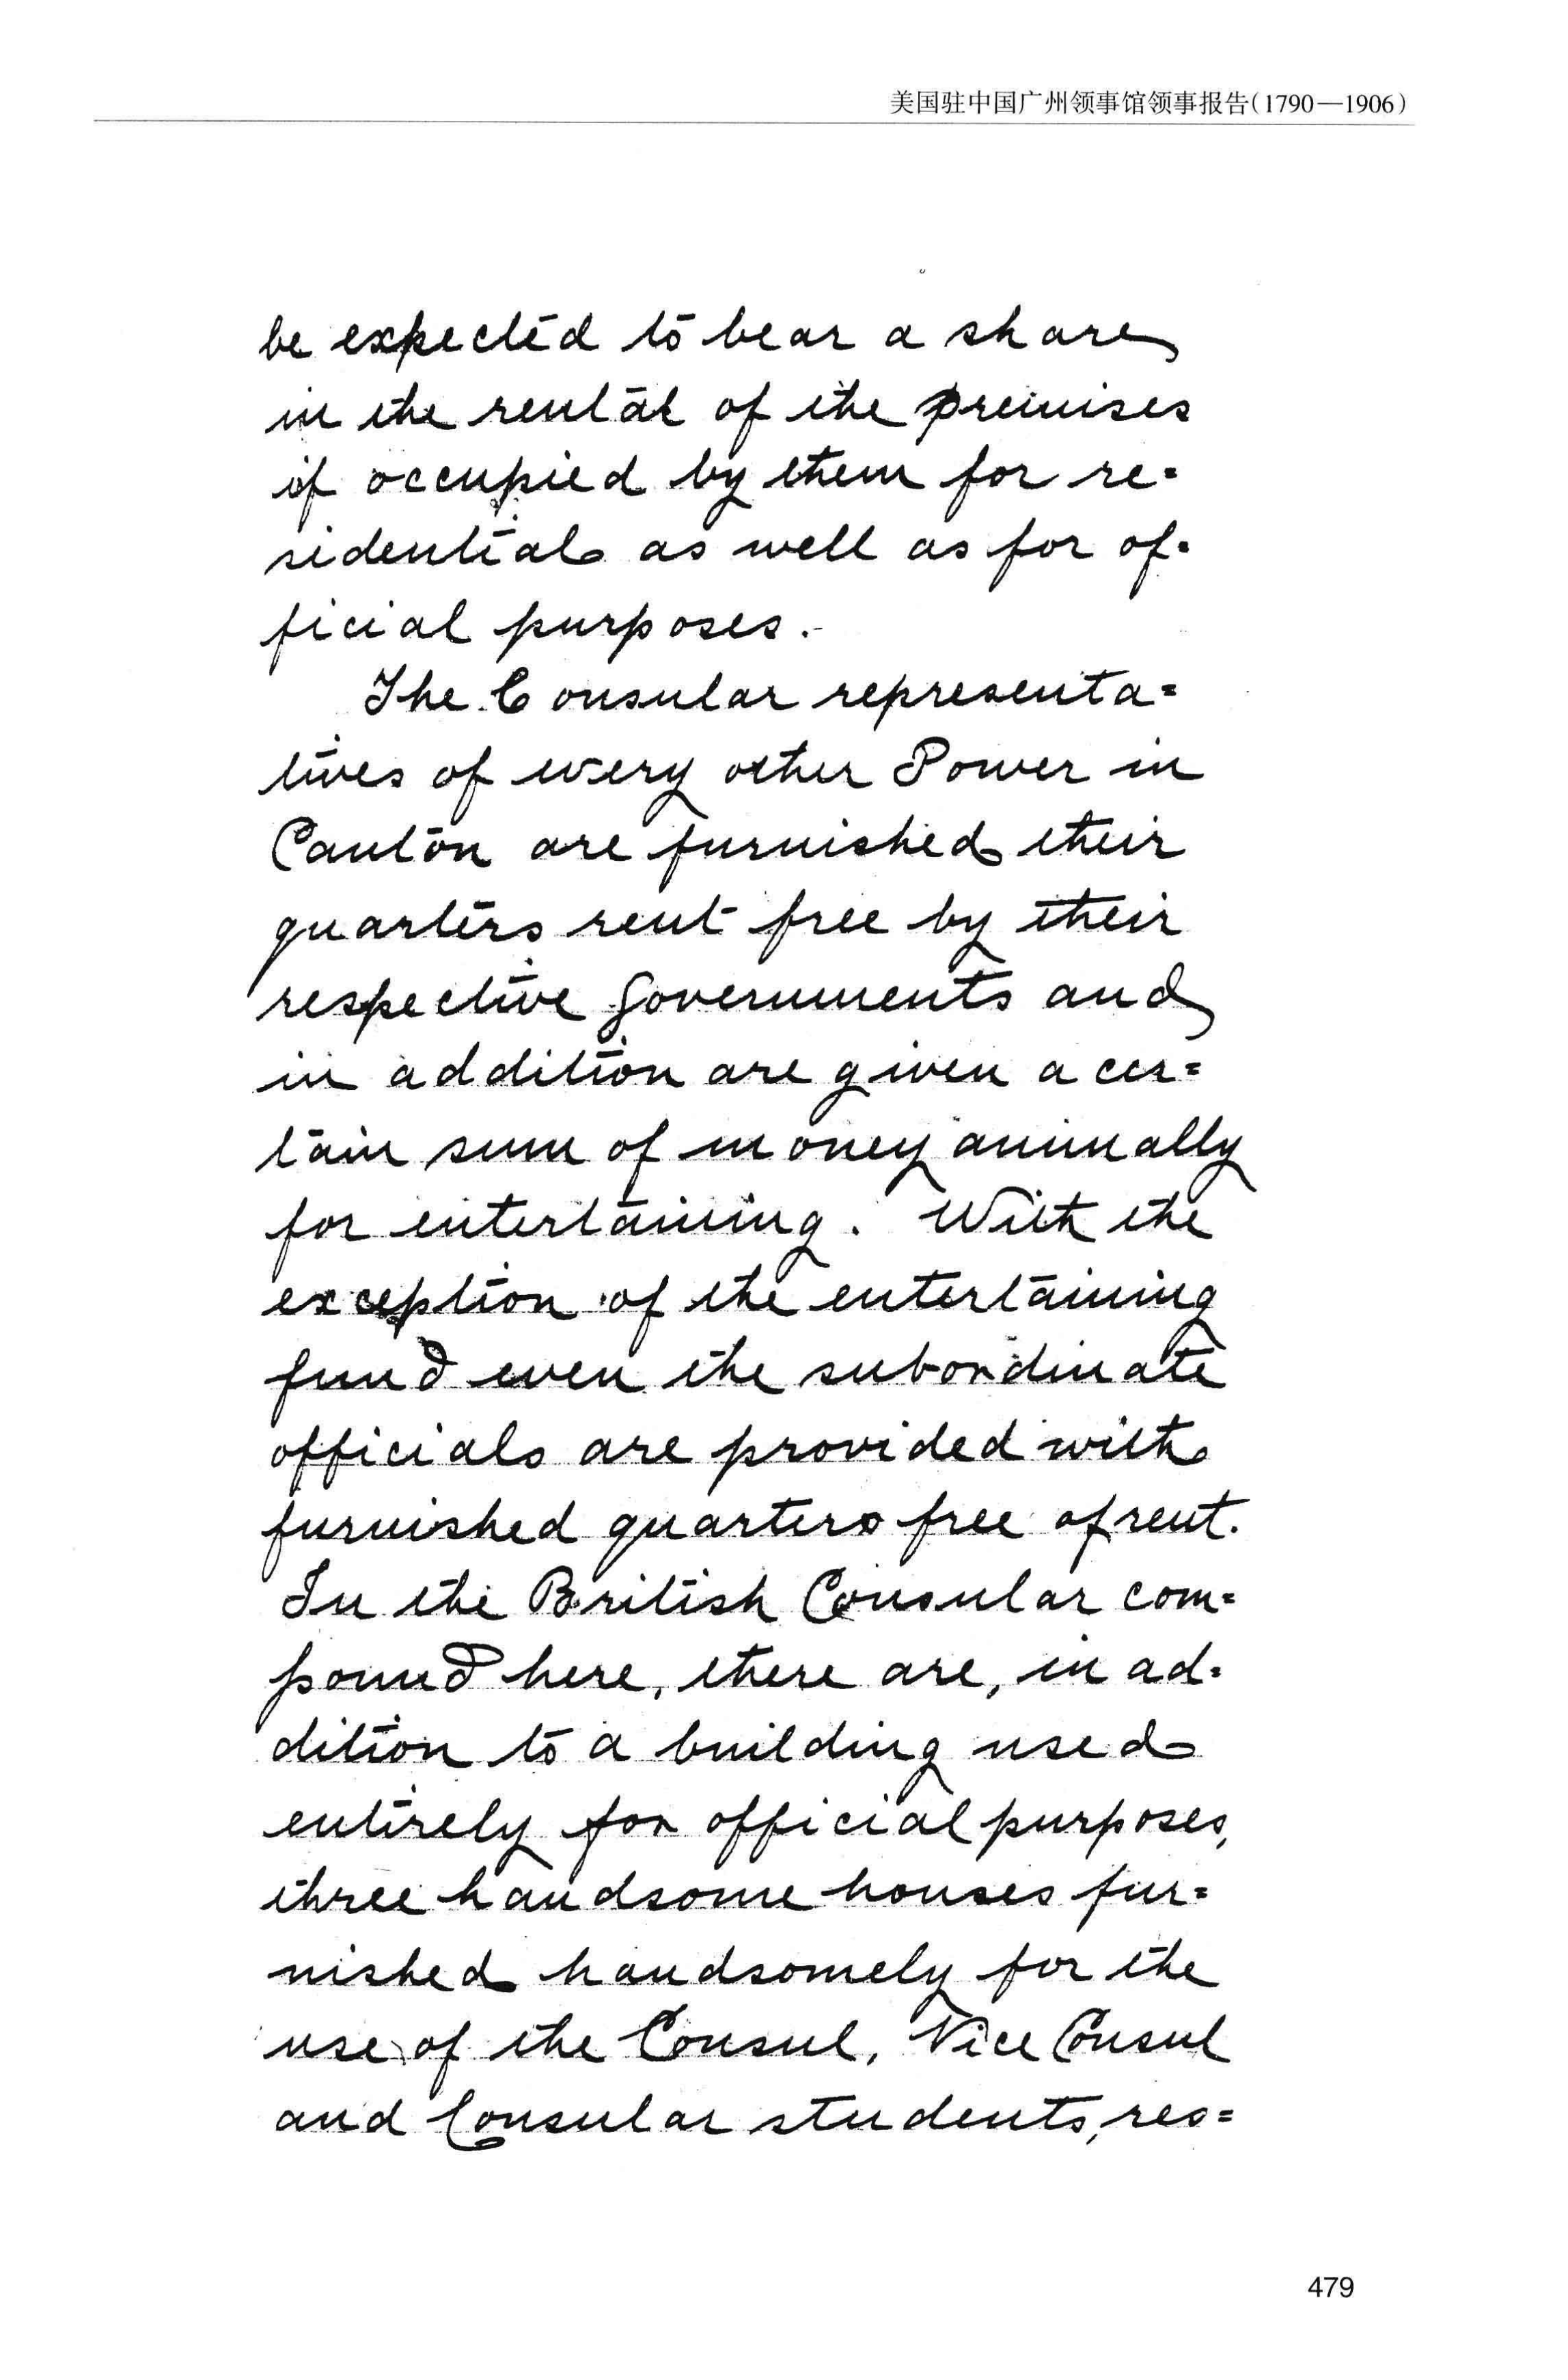 美国驻中国广州领事馆领事报告(1790—1906)
be expected to bear a share
in the rental of the premises
if occupied by them for re=
sidential as well as for of=
ficial purposes.
The Consular representa=
tives of every other Power in
Canton are furnished their
quarters rent free by their
respective Governments and
in addition are given a cer=
tain sum of money annually
for entertaining. With the
exception of the entertaining
fund even the subordinate
officials are provided with
furnished quarters free of rent.
In the British Consular com=
pound here, there are, in ad=
dition to a building used
entirely for official purposes,
three handsome houses fur=
nished handsomely for the
use of the Consul, Vice Consul
and Consular students, res=
479